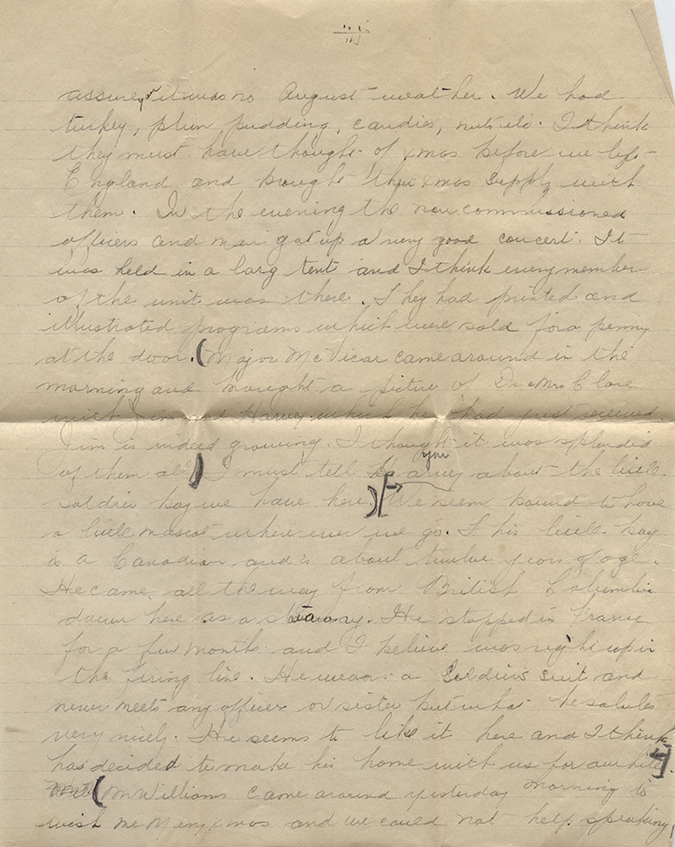 assure, it was no August weather. We had
turkey, plum pudding, candies, nuts etc. I think
they must have thought of xmas before we left
England and bought their xmas supply with
them. In the evening the non commissioned
officers and men got up a very good concert. It
was held in a larg tent and I think every member
of the unit was there. They had printed and
illustrated programs which were sold for a penny
at the door. (Major McVicar came around in the
morning and brought a picture of Dr & Mrs Clare
with Jim and Harvey which he had just received
Jim is indeed growing. I thought it was splendid
of them all) I must tell you about the little
soldier boy we have here. We seem bound to have
a little mascot where ever we go. This little boy
is a Canadian and is about twelve years of age.
He came all the way from British Columbia
down here as a stowaway. He stopped in France
for a few months and I believe was right up in
the firing line. He wears a soldiers suit and
never meets any officer or sister but what he salutes
very nicely. He seems to like it here and I think
has decided to make his home with us for awhile.
(McWilliams came around yesterday morning to
wish me Merry xmas and we could not help speaking